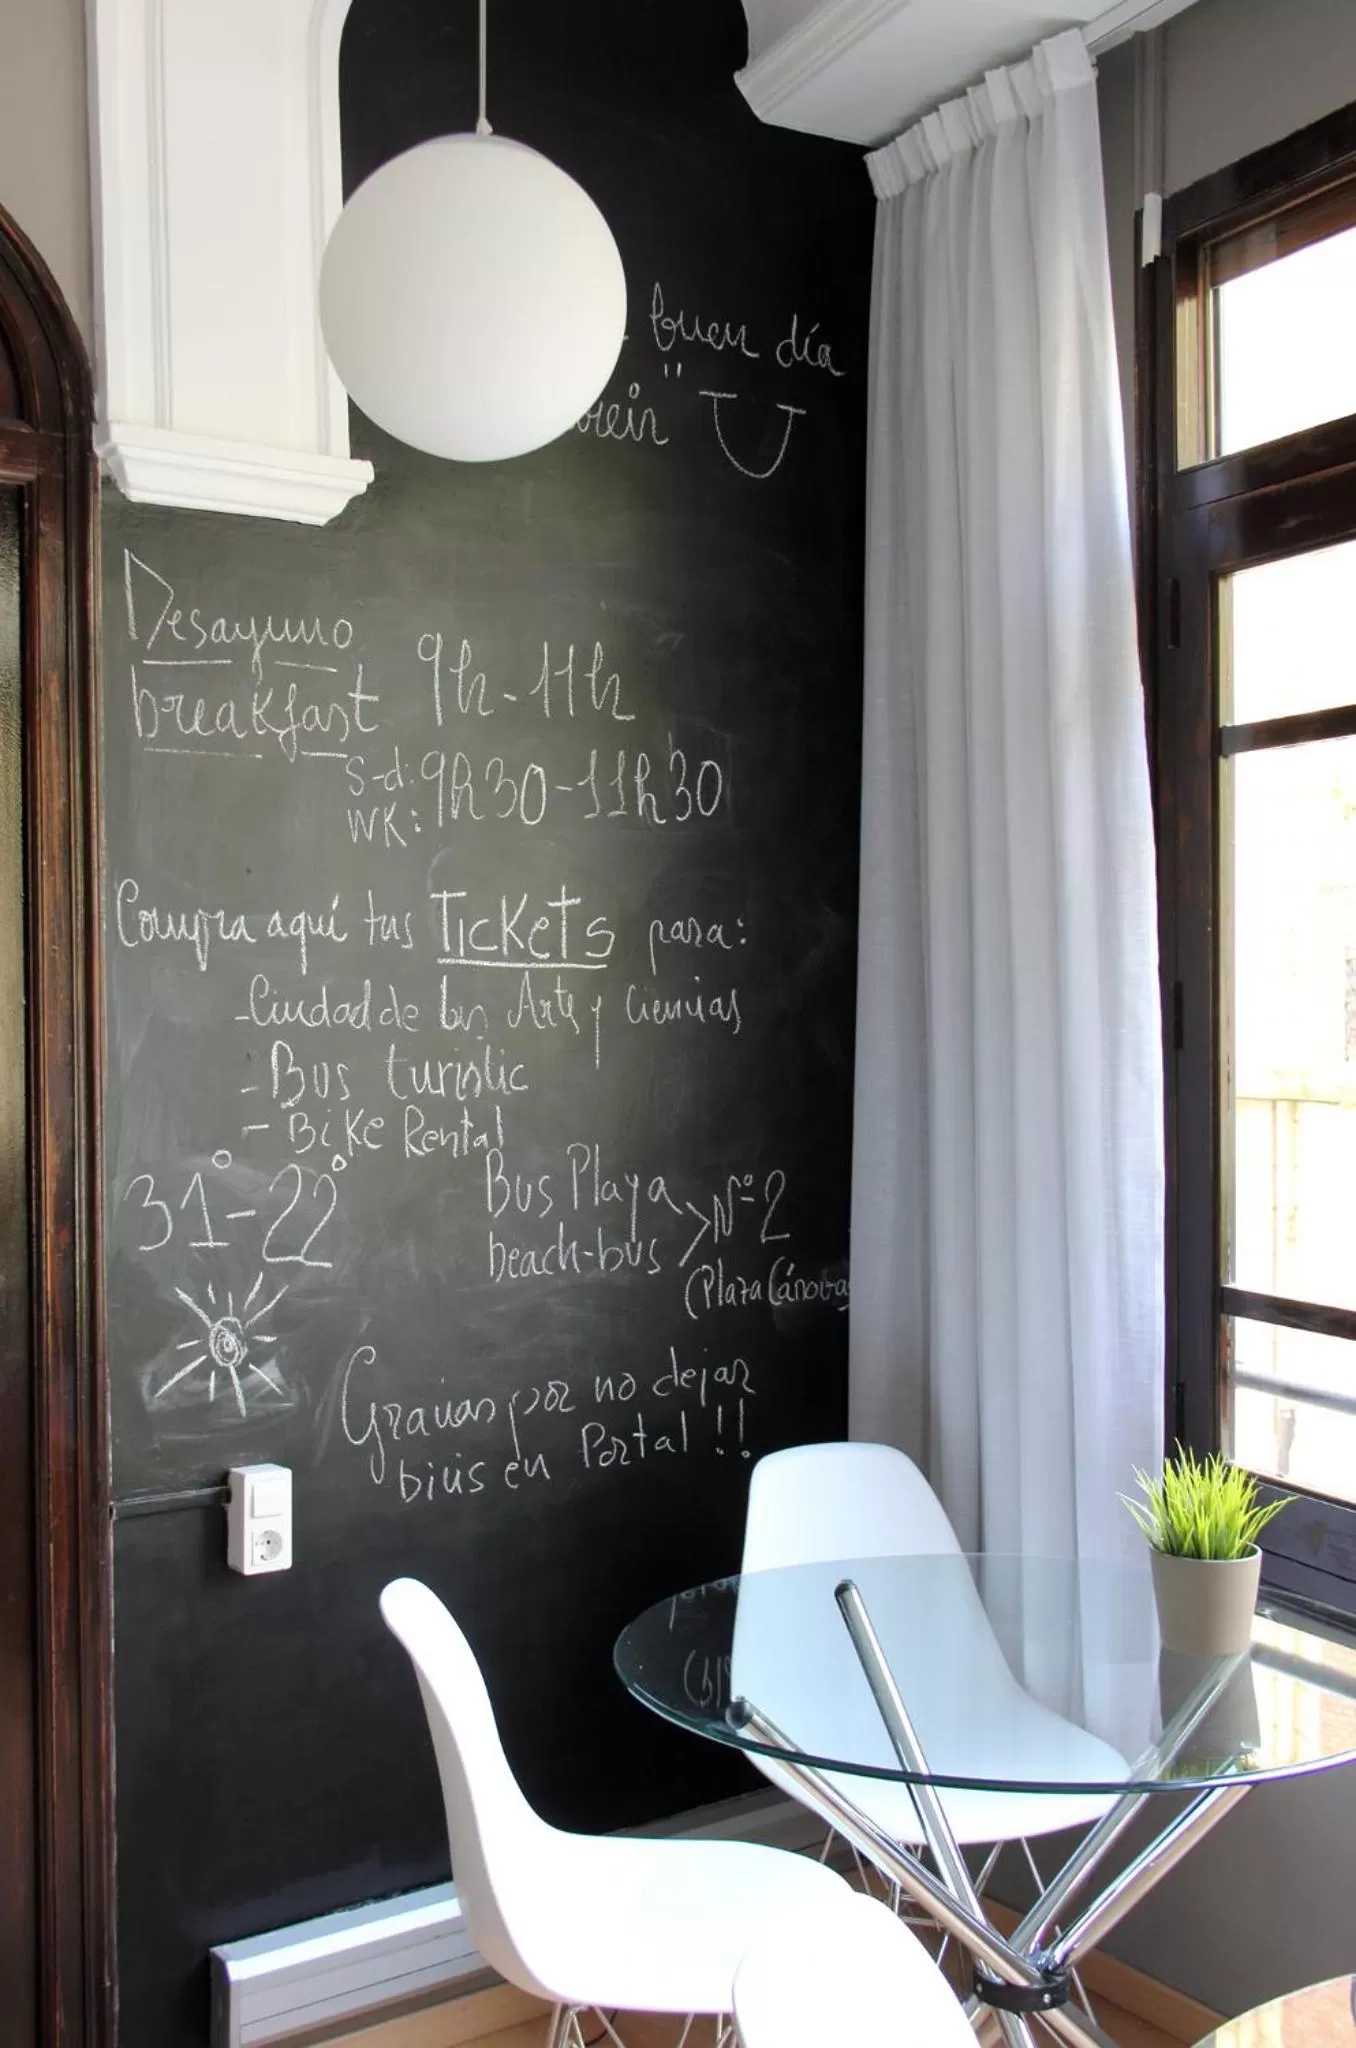 buen día
reir"
Desayuno
breakfast 9h-11h
S-d: 9h30-11h30
WK:
Compra aquí tus TICKETS para:
-Ciudad de las Artes y Ciencias
-Bus turistic
- Bike Rental
31°-22°
Bus Playa
beach-bus > Nº2
(Plaza Cánovas
Gracias por no dejar
bicis en Portal !!